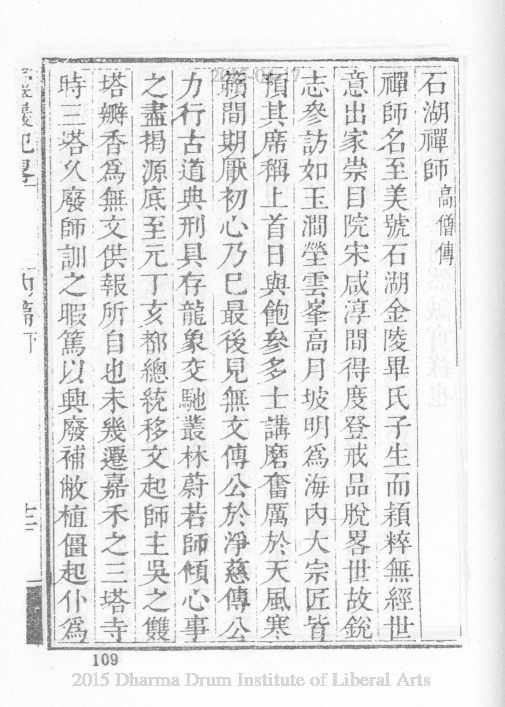 石湖禪師高僧傳
禪師名至美號石湖金陵畢氏子生而穎粹無經世
意出家崇目院宋咸淳間得度登戒品脫畧世故銳
志參訪如玉澗瑩雲峯高月坡明爲海內大宗匠皆
預其席稱上首日與飽參多士講磨奮厲於天風寒
籟間期厭初心乃巳最後見無文傳公於淨慈傳公
力行古道典刑具存龍象交馳叢林蔚若師傾心事
之盡揭源底至元丁亥都總統移文起師主吳之雙
塔瓣香爲無文供報所自也未幾遷嘉禾之三塔寺
時三塔久廢師訓之暇篤以興廢補敝植僵起仆爲
109
2015 Dharma Drum Institute of Liberal Arts